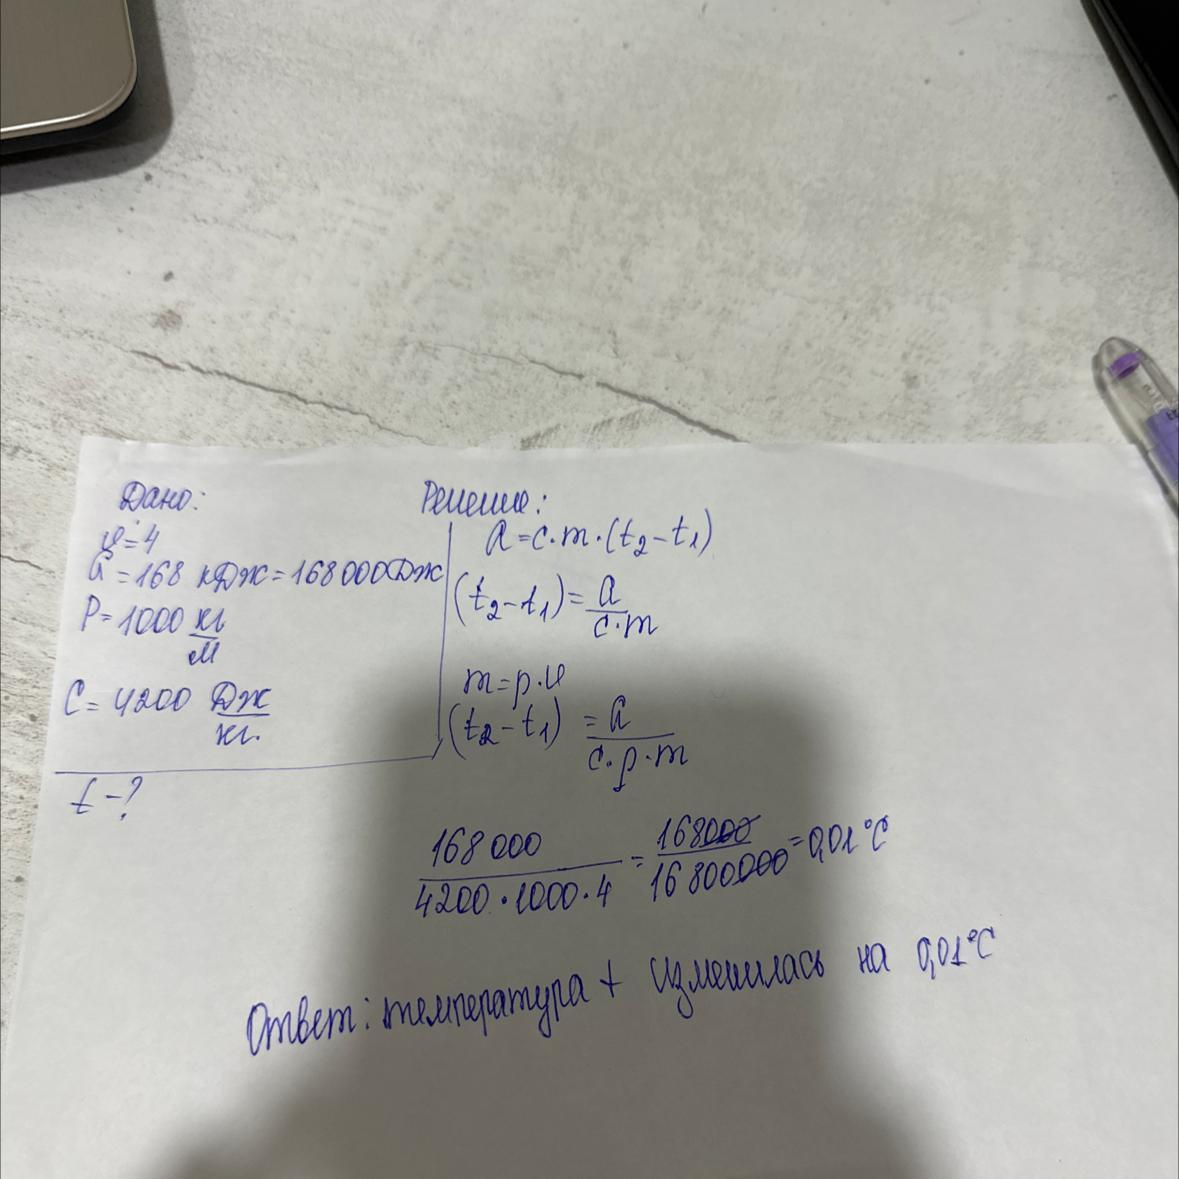 Дано:
V=4
Q=168 кДж=168000Дж
P=1000 кг/м
C=4200 Дж/кг.
t-?
Решение:
Q=c·m·(t₂-t₁)
(t₂-t₁)=Q/c·m
m=p·V
(t₂-t₁)=Q/c·p·m
168000/4200·1000·4=168000/16800000=0,01°C
Ответ: температура t изменилась на 0,01°C